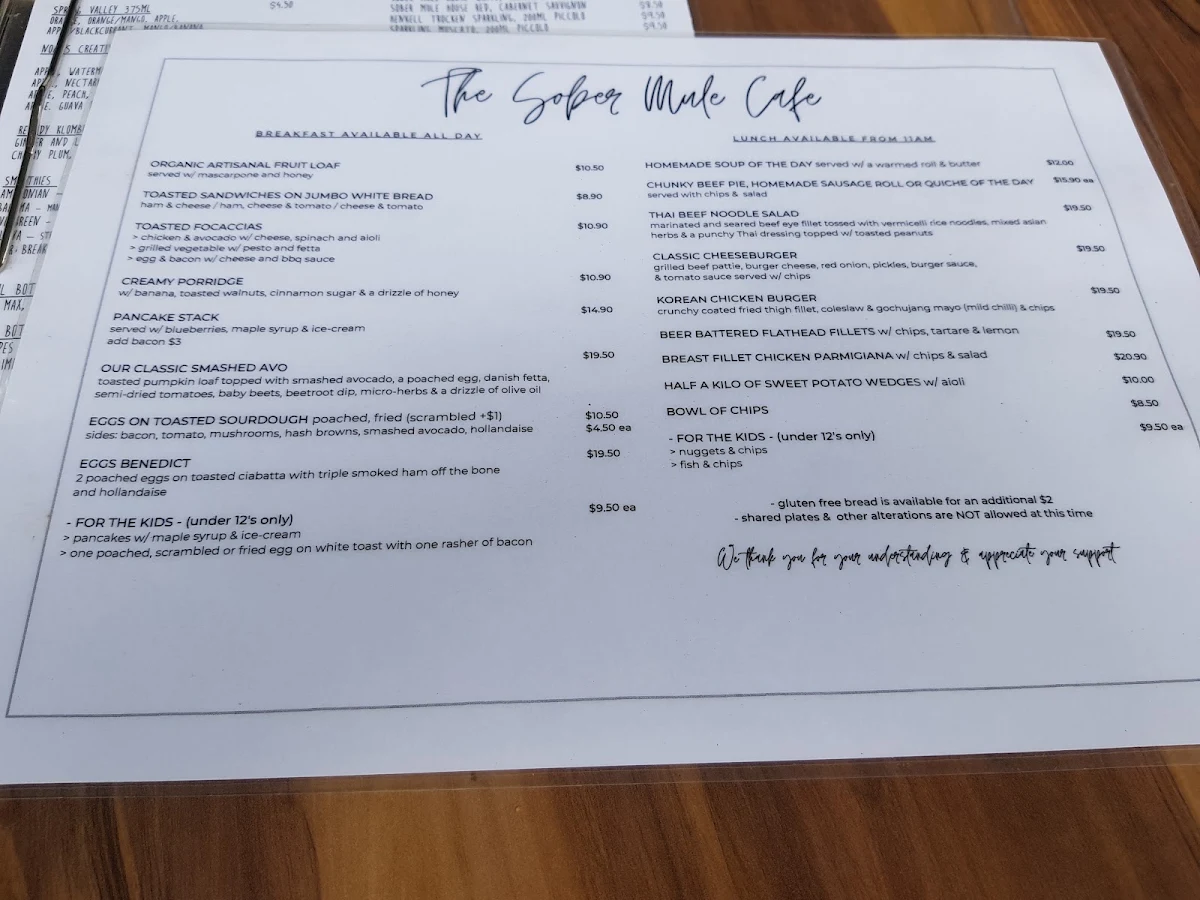 SPRING VALLEY 375ML
$4.50
ORANGE, ORANGE/MANGO, APPLE,
APPLE/BLACKCURRANT, MANGO/BANANA
SOBER MULE HOUSE RED, CABERNET SAUVIGNON
HENKELL TROCKEN SPARKLING, 200ML PICCOLO
$9.50
SPARKLING MOSCATO, 200ML PICCOLO
$9.50
The Sober Mule Cafe
BREAKFAST AVAILABLE ALL DAY
ORGANIC ARTISANAL FRUIT LOAF $10.50
served w/ mascarpone and honey
TOASTED SANDWICHES ON JUMBO WHITE BREAD $8.90
ham & cheese / ham, cheese & tomato / cheese & tomato
TOASTED FOCACCIAS $10.90
> chicken & avocado w/ cheese, spinach and aioli
> grilled vegetable w/ pesto and fetta
> egg & bacon w/ cheese and bbq sauce
CREAMY PORRIDGE $10.90
w/ banana, toasted walnuts, cinnamon sugar & a drizzle of honey
PANCAKE STACK $14.90
served w/ blueberries, maple syrup & ice-cream
add bacon $3
OUR CLASSIC SMASHED AVO $19.50
toasted pumpkin loaf topped with smashed avocado, a poached egg, danish fetta,
semi-dried tomatoes, baby beets, beetroot dip, micro-herbs & a drizzle of olive oil
EGGS ON TOASTED SOURDOUGH poached, fried (scrambled +$1) $10.50
sides: bacon, tomato, mushrooms, hash browns, smashed avocado, hollandaise $4.50 ea
EGGS BENEDICT $19.50
2 poached eggs on toasted ciabatta with triple smoked ham off the bone
and hollandaise
- FOR THE KIDS - (under 12's only) $9.50 ea
> pancakes w/ maple syrup & ice-cream
> one poached, scrambled or fried egg on white toast with one rasher of bacon
LUNCH AVAILABLE FROM 11AM
HOMEMADE SOUP OF THE DAY served w/ a warmed roll & butter $12.00
CHUNKY BEEF PIE, HOMEMADE SAUSAGE ROLL OR QUICHE OF THE DAY $15.90 ea
served with chips & salad
THAI BEEF NOODLE SALAD $19.50
marinated and seared beef eye fillet tossed with vermicelli rice noodles, mixed asian
herbs & a punchy Thai dressing topped w/ toasted peanuts
CLASSIC CHEESEBURGER $19.50
grilled beef pattie, burger cheese, red onion, pickles, burger sauce,
& tomato sauce served w/ chips
KOREAN CHICKEN BURGER $19.50
crunchy coated fried thigh fillet, coleslaw & gochujang mayo (mild chilli) & chips
BEER BATTERED FLATHEAD FILLETS w/ chips, tartare & lemon $19.50
BREAST FILLET CHICKEN PARMIGIANA w/ chips & salad $20.90
HALF A KILO OF SWEET POTATO WEDGES w/ aioli $10.00
BOWL OF CHIPS $8.50
- FOR THE KIDS - (under 12's only) $9.50 ea
> nuggets & chips
> fish & chips
- gluten free bread is available for an additional $2
- shared plates & other alterations are NOT allowed at this time
We thank you for your understanding & appreciate your support